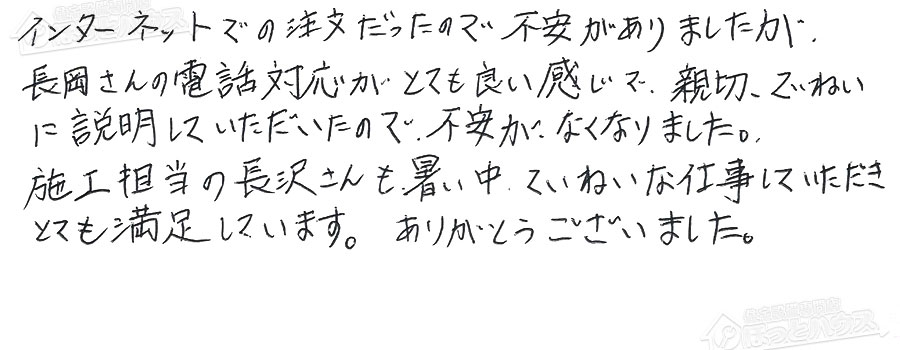 インターネットでの注文だったので不安がありましたが、
長岡さんの電話対応がとても良い感じで、親切、ていねい
に説明していただいたので、不安が、なくなりました。
施工担当の長沢さんも、暑い中、ていねいな仕事していただき
とても満足しています。 ありがとうございました。
ほっとハウス